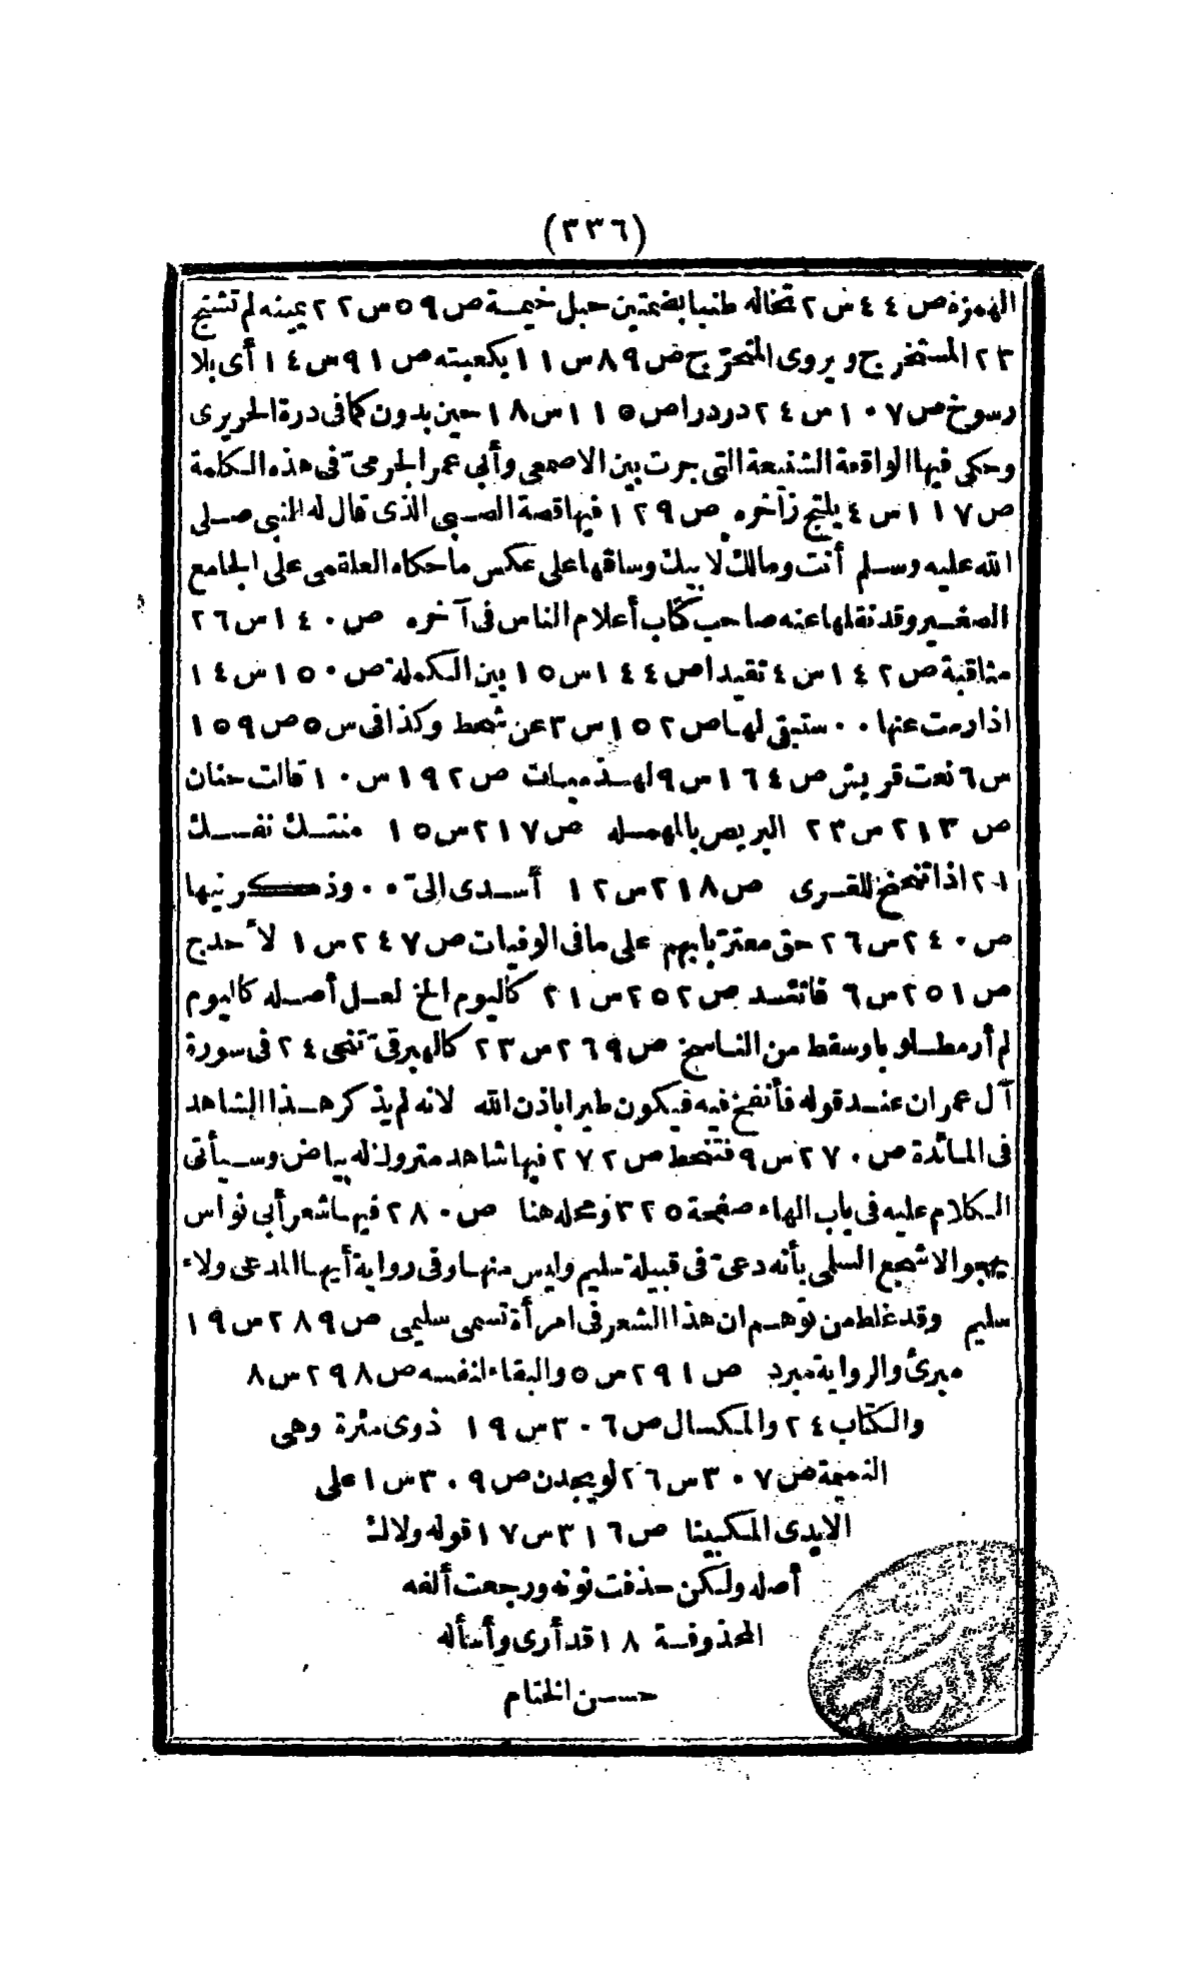 (٣٣٦)
الهمزة ص ٤٤ س ٢ تخاله طنبا بضمتين حبل خيمة ص ٥٩ س ٢٢ يمينه لم تشنج
٢٣ المستخرج ويروى المتحرّج ص ٨٩ س ١١ بكعبته ص ٩١ س ١٤ أى بلا
رسوخ ص ١٠٧ س ٢٤ دردرا ص ١١٥ س ١٨ حين بدون كما فى درة الحريرى
وحكى فيها الواقعة الشنيعة التى جرت بين الاصمعى وأبى عمر الجرمىّ فى هذه الكلمة
ص ١١٧ س ٤ يلتج زآخره ص ١٢٩ فيها قصة الصبى الذى قال له النبى صلى
الله عليه وسلم أنت ومالك لابيك وساقها على عكس ما حكاه العلقمى على الجامع
الصغير وقد نقلها عنه صاحب كتاب أعلام الناس فى آخره ص ١٤٠ س ٢٦
مثاقبة ص ١٤٢ س ٤ تقيدا ص ١٤٤ س ١٥ بين الكملة ص ١٥٠ س ١٤
اذا رمت عنها ٠٠ ستبقى لها ص ١٥٢ س ٣ عن شحط وكذا فى س ٥ ص ١٥٩
س ٦ نعت قريش ص ١٦٤ س ٩ لهذميات ص ١٩٢ س ١٠ قالت حنان
ص ٢١٣ س ٢٣ البريص بالمهمله ص ٢١٧ س ١٥ منتك نفسك
٢١ اذا تنحنح للقرى ص ٢١٨ س ١٢ أسدى الىّ ٠٠ وذكرنيها
ص ٢٤٠ س ٢٦ حق معتز بأبيهم على ما فى الوفيات ص ٢٤٧ س ١ لأحدج
ص ٢٥١ س ٦ فانشد ص ٢٥٢ س ٢١ كاليوم الخ لعل أصله كاليوم
لم أر مطلوبا وسقط من الناسخ ص ٢٦٩ س ٢٣ كالهبرقىّ تنحى ٢٤ فى سورة
آل عمران عند قوله فأنفخ فيه فيكون طيرا باذن الله لانه لم يذكر هذا الشاهد
فى المائدة ص ٢٧٠ س ٩ فتنحط ص ٢٧٢ فيها شاهد متروك له بياض وسيأتى
الكلام عليه فى باب الهاء صفحة ٣٢٥ ومحله هنا ص ٢٨٠ فيها شعر أبى نواس
يهجو الاشجع السلمى بأنه دعىّ فى قبيلة سليم وليس منها وفى رواية أيها المدعى ولاء
سليم وقد غلط من توهم ان هذا الشعر فى امرأة تسمى سليمى ص ٢٨٩ س ١٩
مبرئ والرواية مبرد ص ٢٩١ س ٥ والبقاء لنفسه ص ٢٩٨ س ٨
والكتاب ٢٤ والمكسال ص ٣٠٦ س ١٩ ذوى مئرة وهى
النميمة ص ٣٠٧ س ٢٦ لو يجدن ص ٣٠٩ س ١ على
الايدى المكبينا ص ٣١٦ س ١٧ قوله ولاك
أصله ولكن حذفت نونه ورجعت ألفه
المحذوفة ١٨ قد أرى وأسأله
حسن الختام